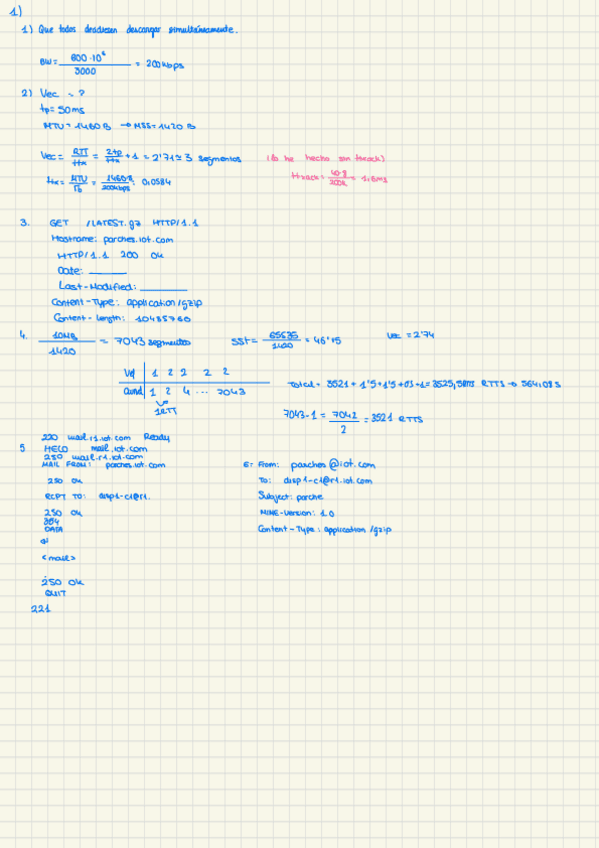 1)
1) Que todos desdesen descargar simultáneamente.
BW = 600·10⁶ / 3000 = 200kbps
2) Vec ~ ?
tp = 50ms
MTU = 1460 B → MSS = 1420 B
Vec = RTT / ttx = 2tp / ttx + 1 = 2'71 ≃ 3 segmentos (lo he hecho san ttxack)
ttx = MTU / Tb = 1460·8 / 200kbps : 0,0584 ttxack = 40·8 / 200k = 1,6ms
3. GET /LATEST.gz HTTP/1.1
Hostname: parches.iot.com
HTTP/1.1 200 OK
Date: ______
Last-Modified: ______
Content-Type: application/gzip
Content-length: 10485760
4. 10MB / 1420 = 7043 segmentos SST = 65535 / 1420 = 46'15 Vec = 2'74
Vef 1 2 2 2 2
cwnd 1 2 4 ... 7043 Total = 3521 + 1'5 + 1'5 + 0'5 + 1 = 3525,5 RTTs → 564,08s
1RTT
7043-1 = 7042 / 2 = 3521 RTTS
220 mail.r1.iot.com Ready
5 HELO mail.iot.com
250 mail.r1.iot.com
MAIL FROM: parches.iot.com E: From: parches@iot.com
250 OK To: disp1-c1@r1.iot.com
RCPT TO: disp1-c1@r1. Subject: parche
250 OK MIME-Version: 1.0
354
DATA Content-Type: application/gzip
<mail>
250 OK
QUIT
221